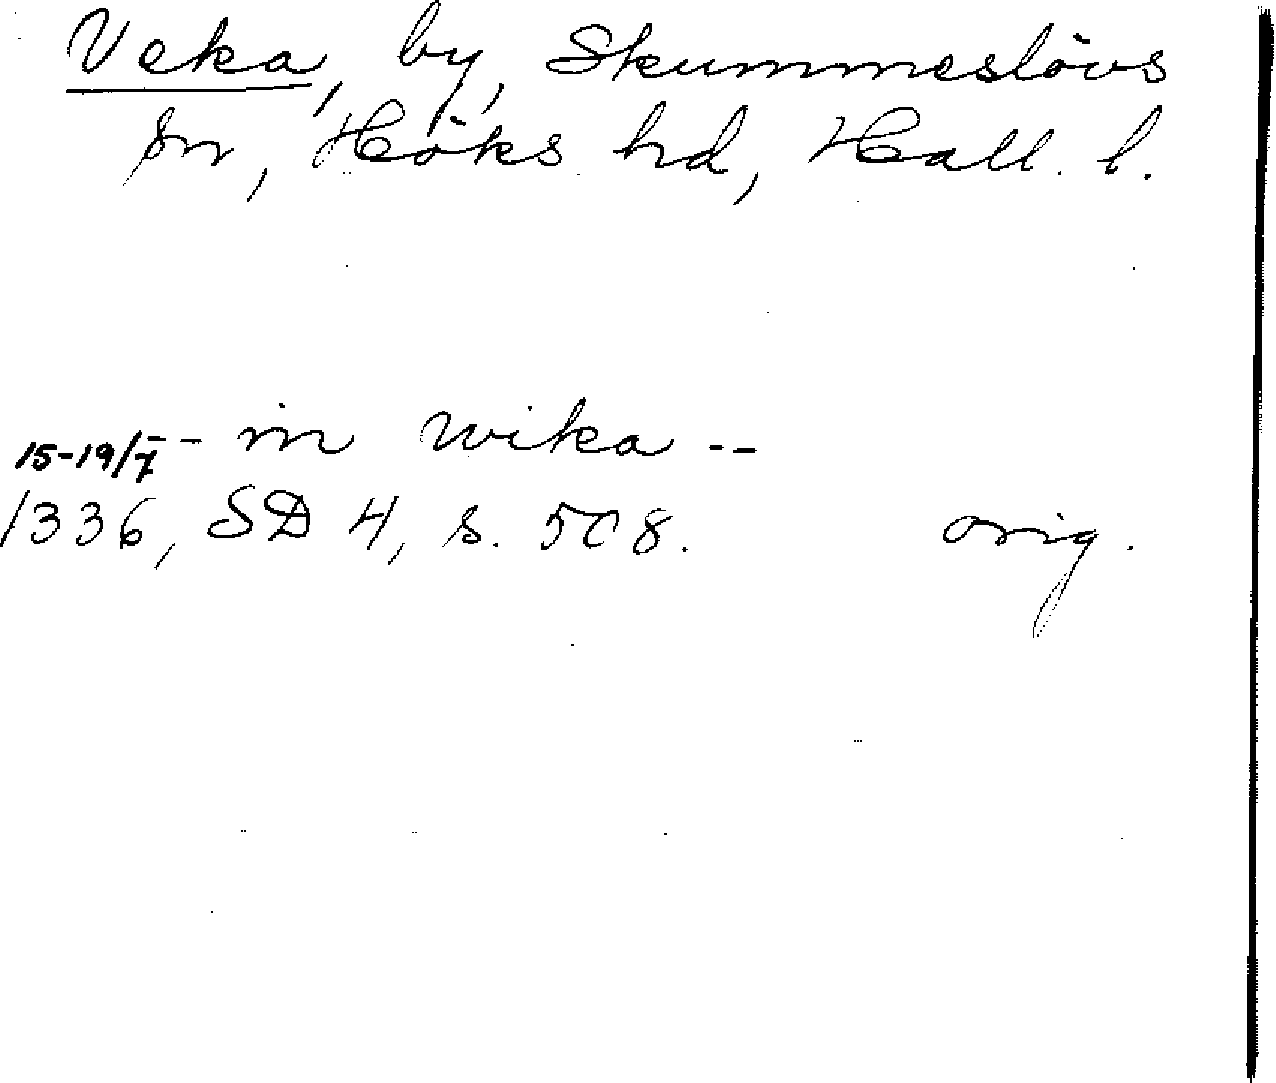 Veka, by, Skummeslövs
sn, Höks hd, Hall. l.
15-19/7 -- in wika --
1336, SD 4, s. 508. orig.